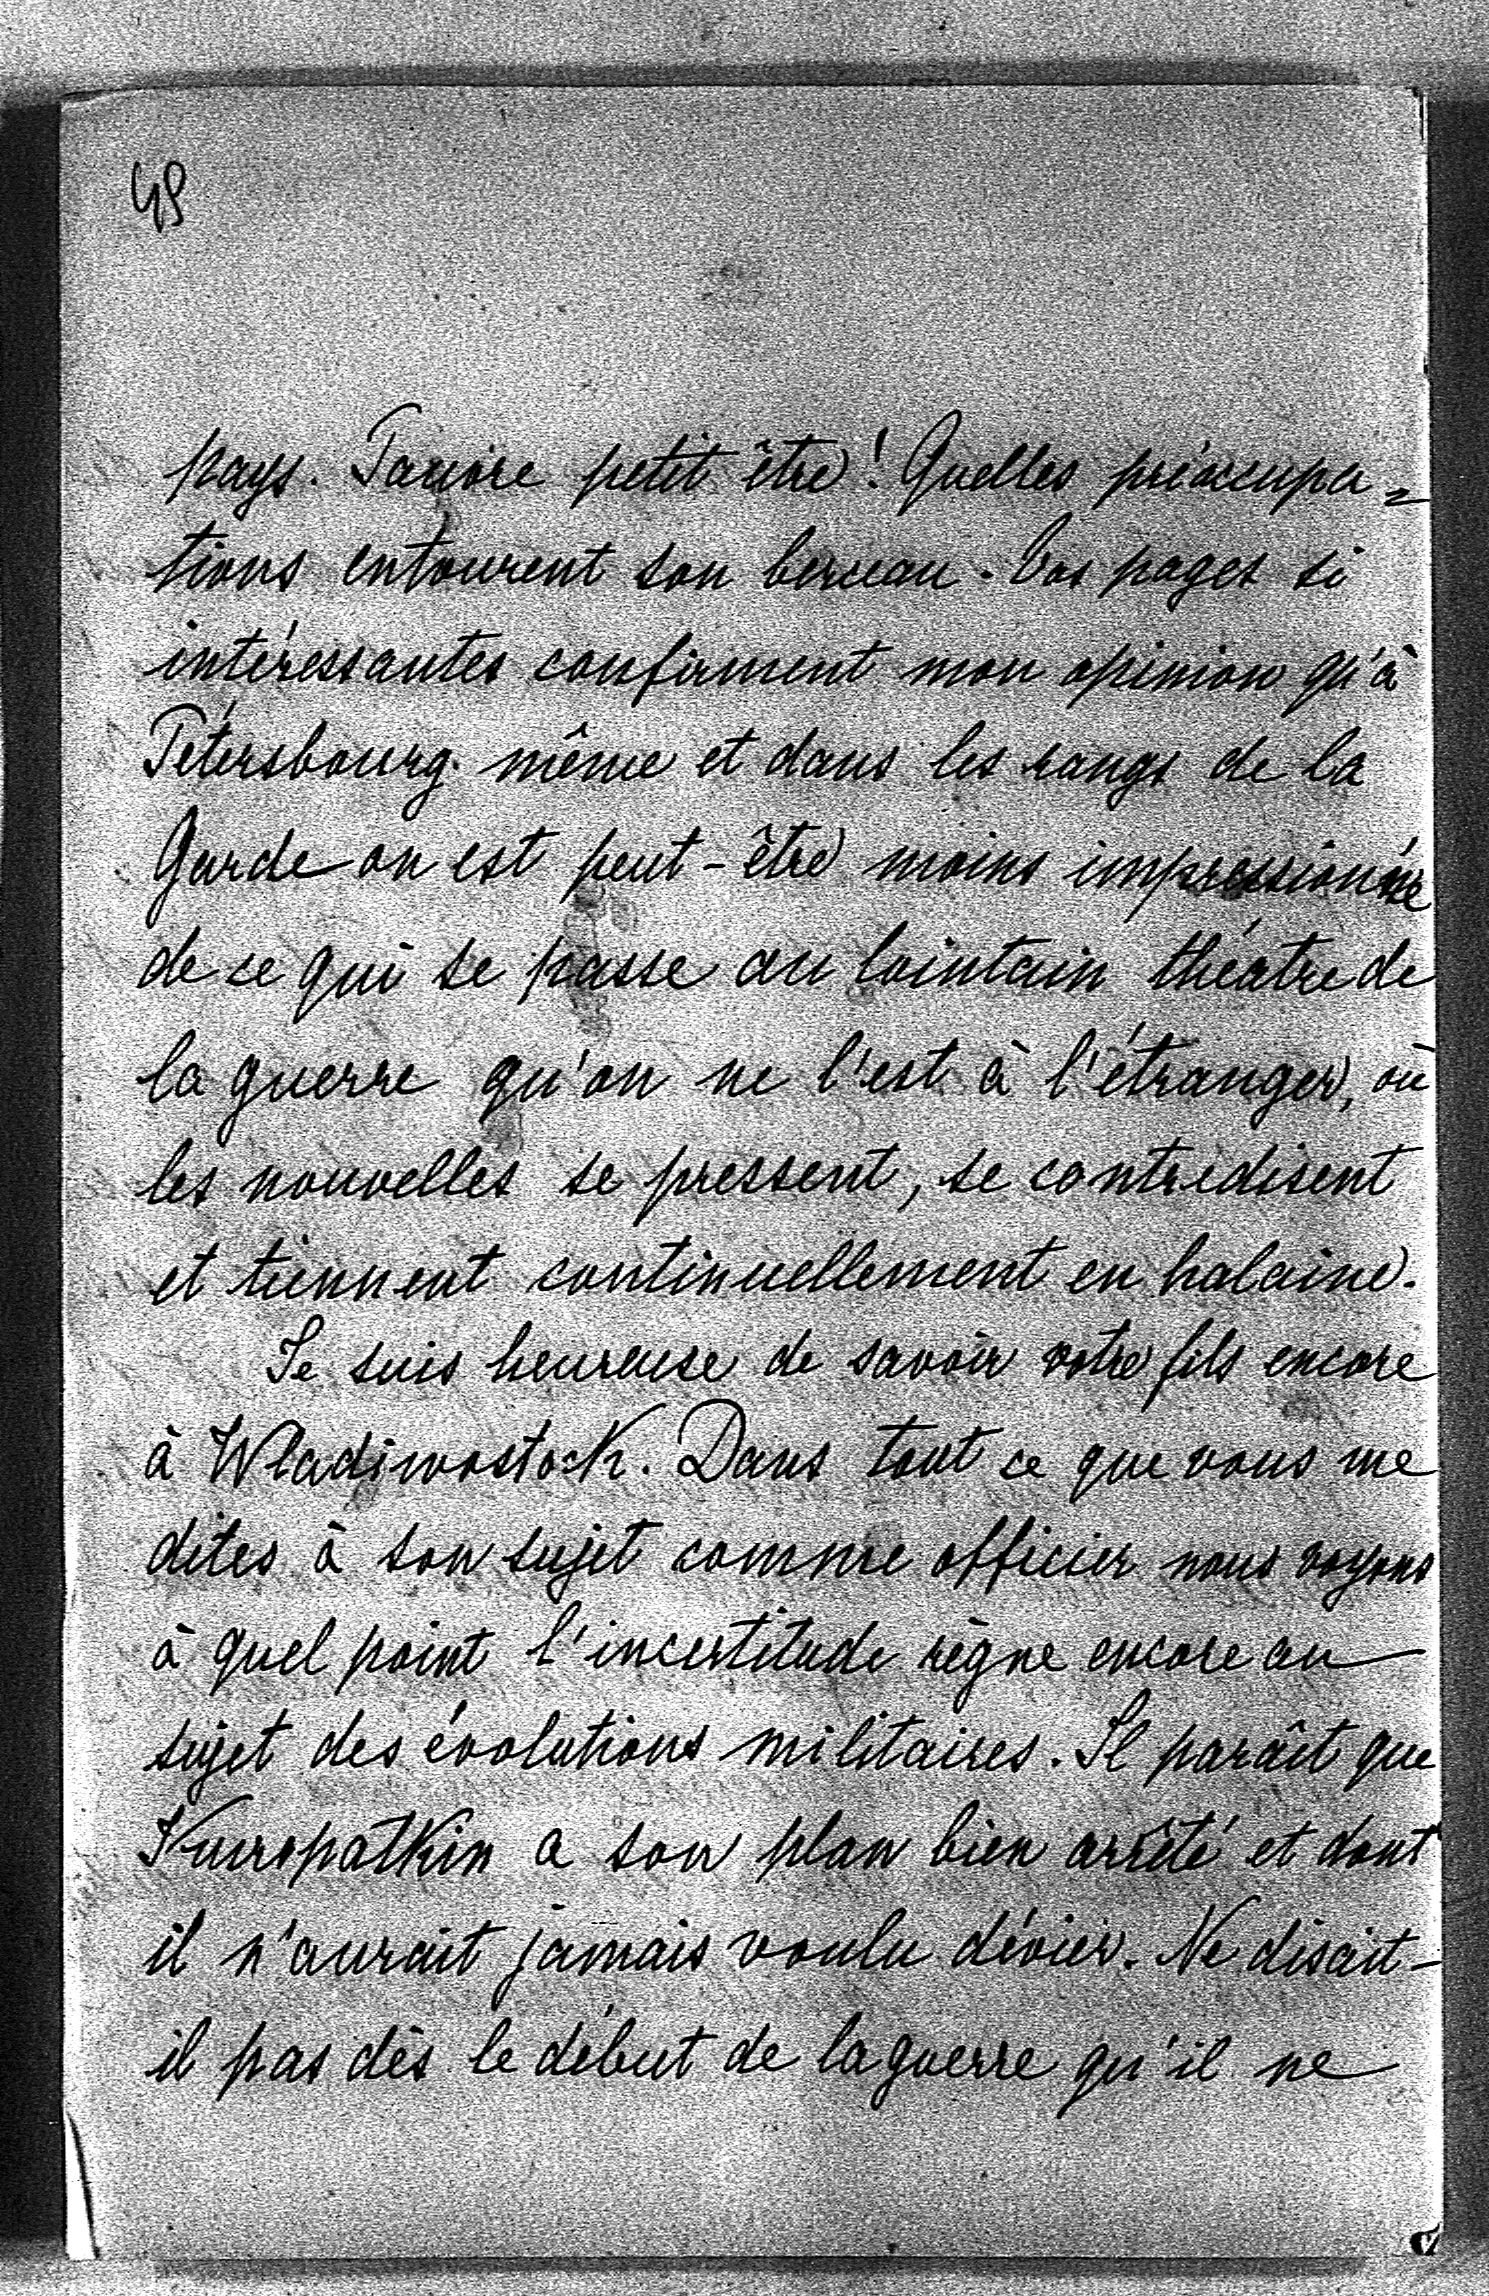 49
pays. Pauvre petit être! Quelles préoccupa=
tions entourent son berceau. Vos pages si
intéressantes confirment mon opinion qu'à
Pétersbourg même et dans les rangs de la
Garde on est peut-être moins impressionné
de ce qui se passe au lointain théatre de
la guerre qu'on ne l'est à l'étranger, où
les nouvelles se pressent, se contredisent
et tiennent continuellement en halaine.
Je suis heureuse de savoir votre fils encore
à Wladiwostock. Dans tout ce que vous me
dites à son sujet comme officier nous voyons
à quel point l'incertitude règne encore au
sujet des évolutions militaires. Il paraît que
Kuropatkin a son plan bien arrêté et dont
il n'aurait jamais voulu dévier. Ne disait-
il pas dès le début de la guerre qu'il ne